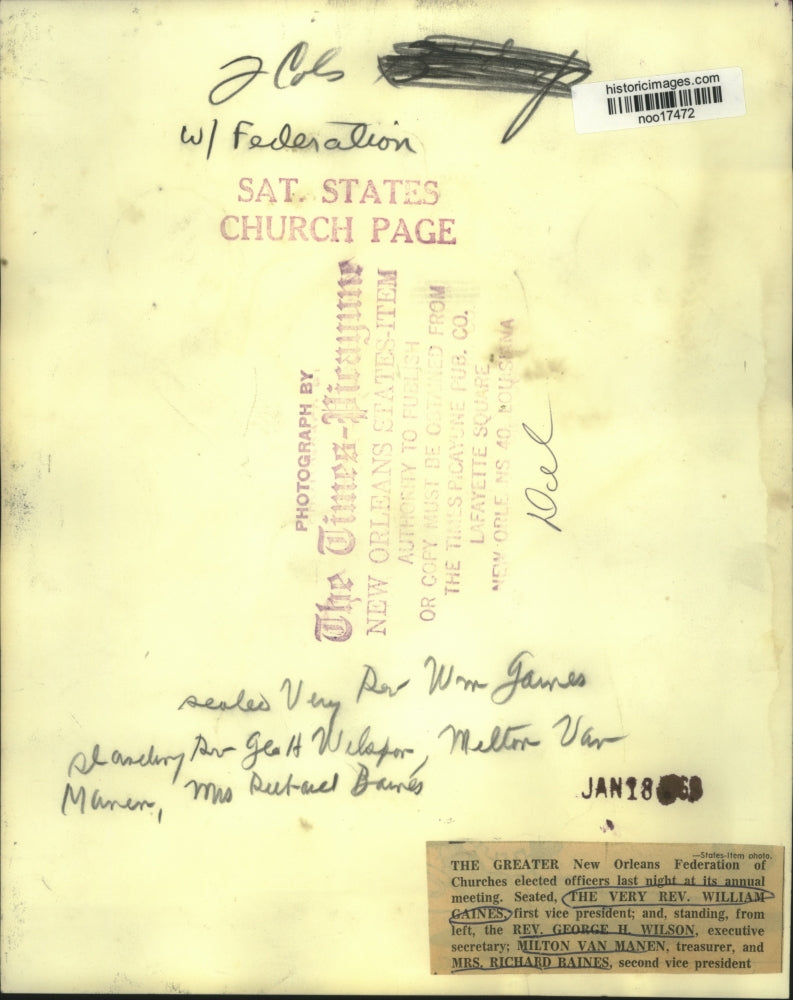 2 Cols
historicimages.com
noo17472
w/ Federation
SAT. STATES
CHURCH PAGE
PHOTOGRAPH BY
The Times-Picayune
NEW ORLEANS STATES-ITEM
AUTHORITY TO PUBLISH
OR COPY MUST BE OBTAINED FROM
THE TIMES PICAYUNE PUB. CO.
LAFAYETTE SQUARE
NEW ORLEANS 40, LOUISIANA
seated Very Rev Wm Gaines
standing Rev Geo H Wilson, Milton Van
Manen, Mrs Richard Baines
JAN 18
—States-Item photo.
THE GREATER New Orleans Federation of
Churches elected officers last night at its annual
meeting. Seated, THE VERY REV. WILLIAM
GAINES, first vice president; and, standing, from
left, the REV. GEORGE H. WILSON, executive
secretary; MILTON VAN MANEN, treasurer, and
MRS. RICHARD BAINES, second vice president